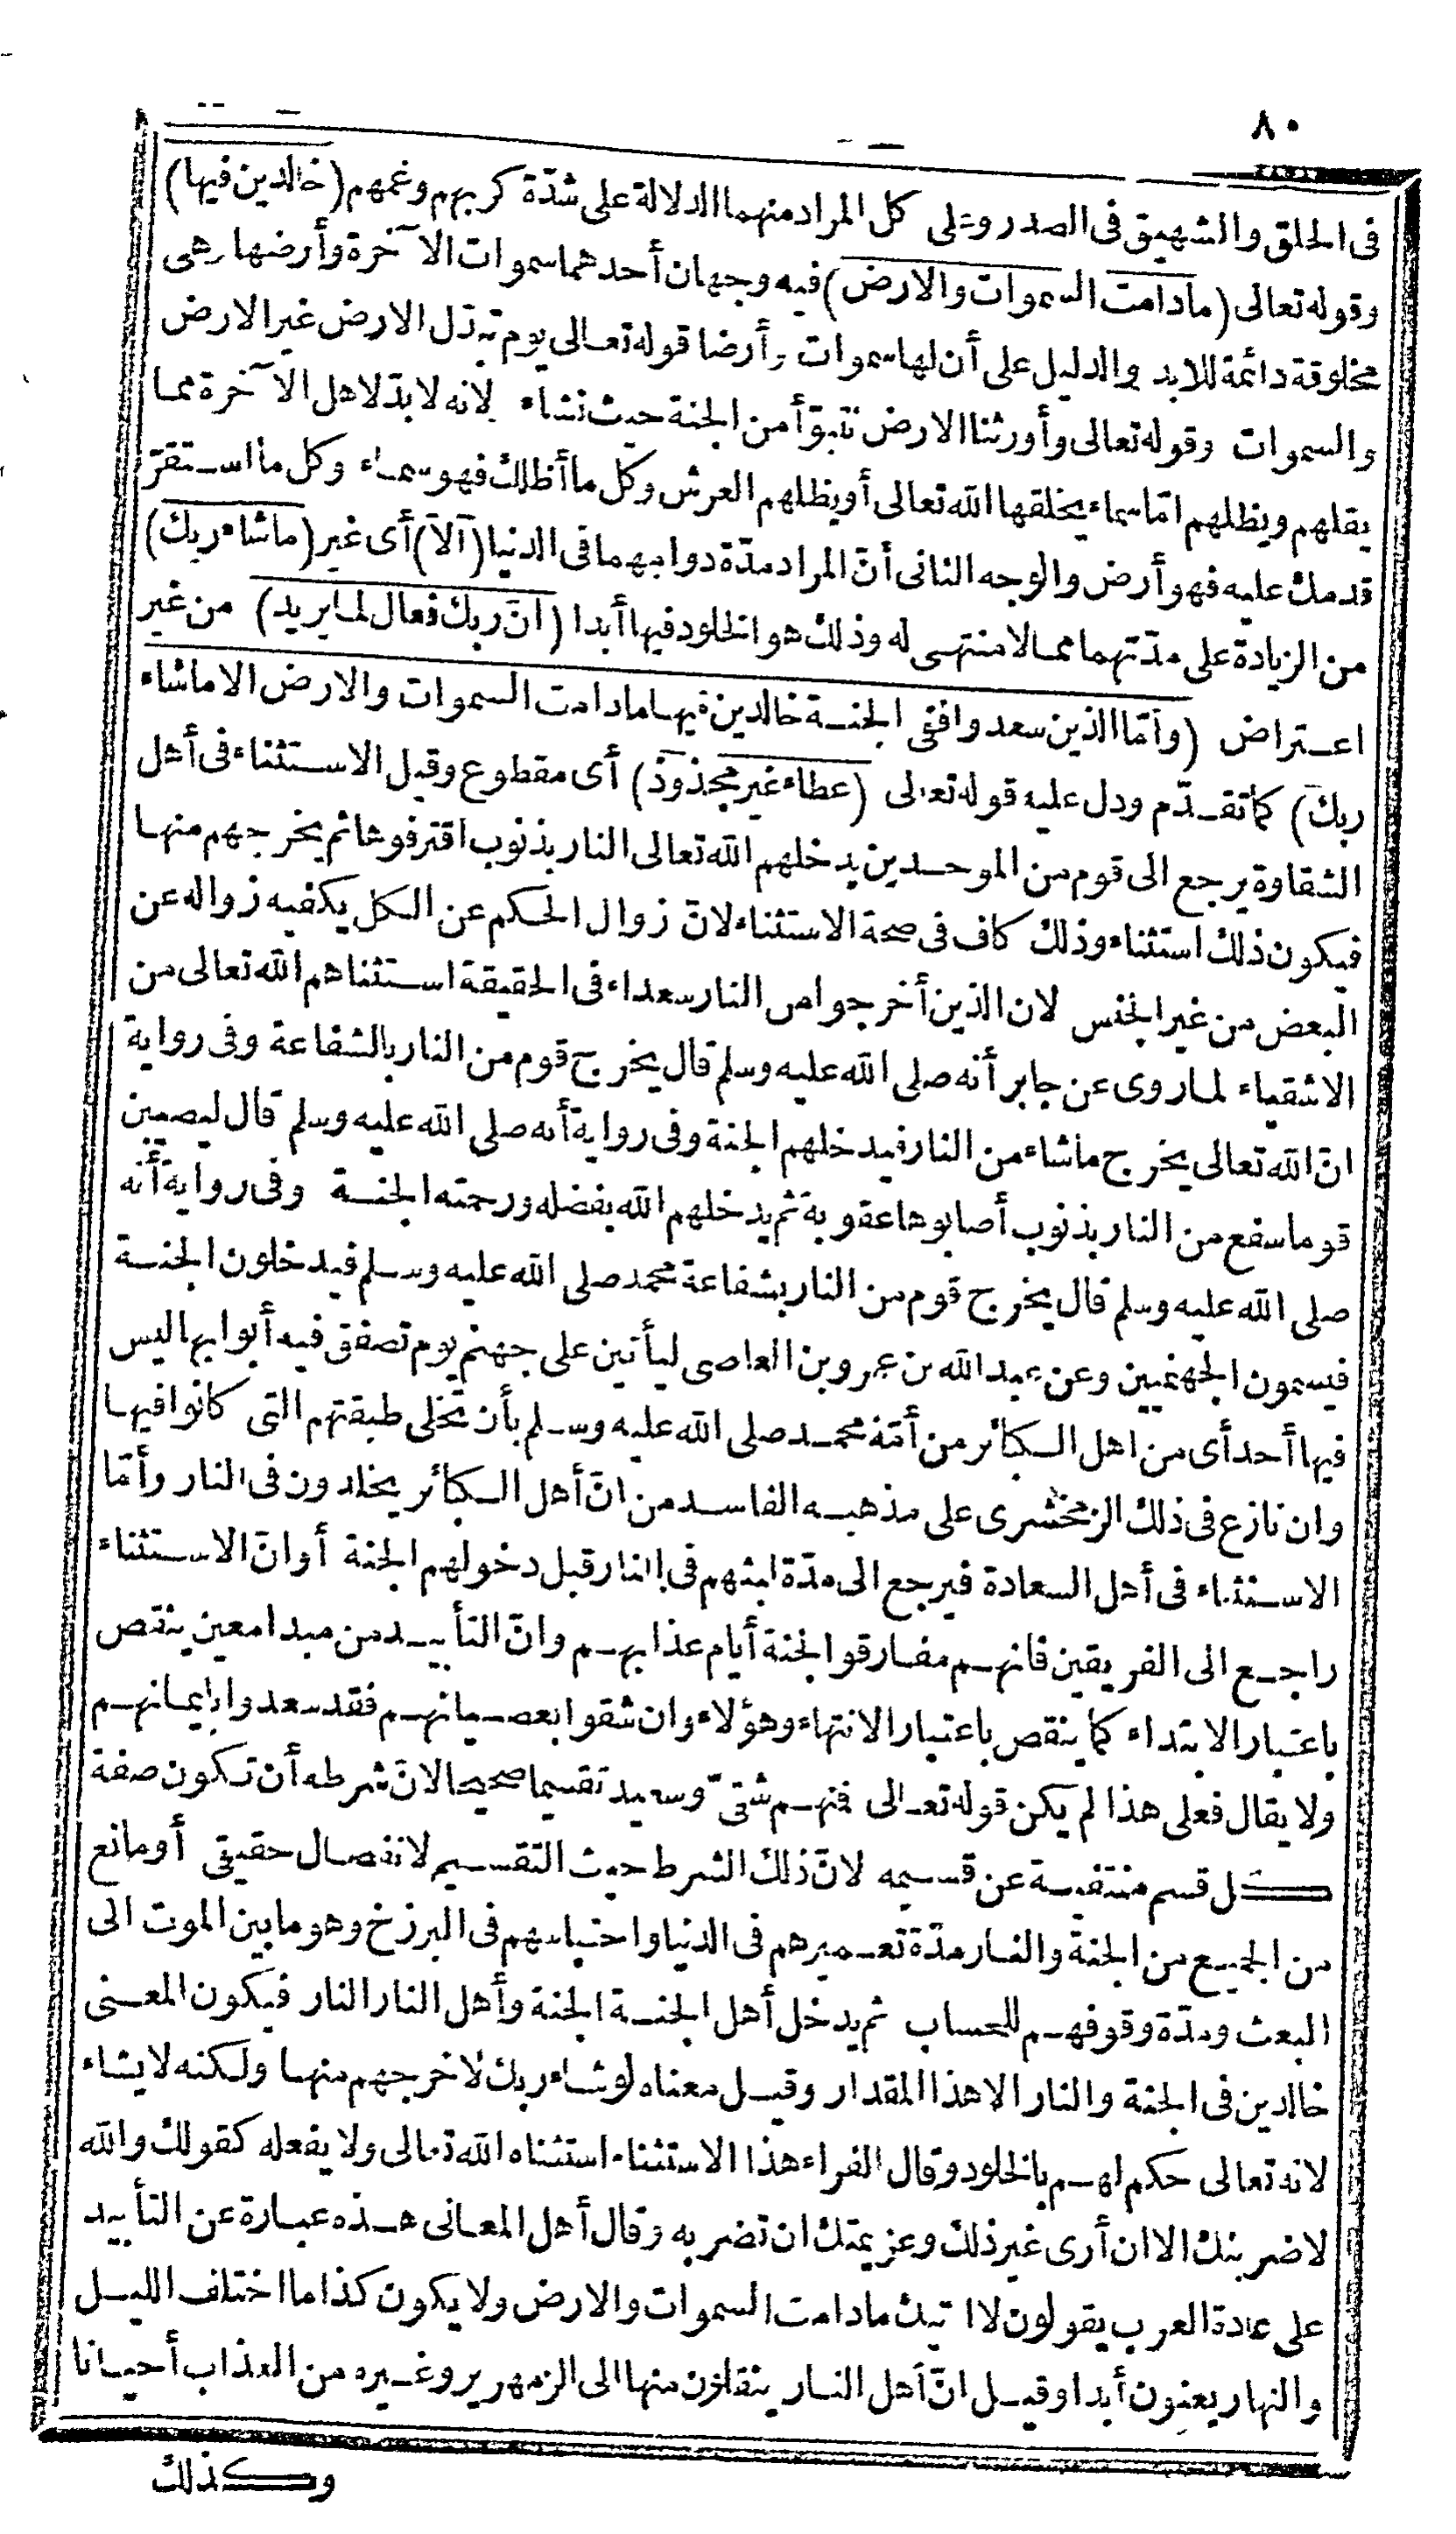 ٨٠
فى الحلق والشهيق فى الصدر وعلى كل المراد منهما الدلالة على شدّة كربهم وغمهم (خالدين فيها)
وقوله تعالى (مادامت السموات والارض) فيه وجهان أحدهما سموات الآخرة وأرضها وهى
مخلوقة دائمة للابد والدليل على أن لها سموات وأرضا قوله تعالى يوم تبدّل الارض غير الارض
والسموات وقوله تعالى وأورثنا الارض نتبوّأ من الجنة حيث نشاء لانه لابدّ لاهل الآخرة مما
يقلهم ويظلهم امّا سماء يخلقها الله تعالى أو يظلهم العرش وكل ما أظلك فهو سماء وكل ما استقرّ
قدمك عليه فهو أرض والوجه الثانى أنّ المراد مدّة دوامهما فى الدنيا (الا) أى غير (ماشاء ربك)
من الزيادة على مدّتهما مما لا منتهى له وذلك هو الخلود فيها أبدا (انّ ربك فعال لما يريد) من غير
اعتراض (وأمّا الذين سعدوا ففى الجنة خالدين فيها مادامت السموات والارض الا ماشاء
ربك) كما تقدّم ودل عليه قوله تعالى (عطاء غير مجذوذ) أى مقطوع وقيل الاستثناء فى أهل
الشقاوة يرجع الى قوم من الموحدين يدخلهم الله تعالى النار بذنوب اقترفوها ثم يخرجهم منها
فيكون ذلك استثناء وذلك كاف فى صحة الاستثناء لانّ زوال الحكم عن الكل يكفيه زواله عن
البعض من غير الجنس لان الذين أخرجوا من النار سعداء فى الحقيقة استثناهم الله تعالى من
الاشقياء لما روى عن جابر أنه صلى الله عليه وسلم قال يخرج قوم من النار بالشفاعة وفى رواية
انّ الله تعالى يخرج ماشاء من النار فيدخلهم الجنة وفى رواية أنه صلى الله عليه وسلم قال ليصيبن
قوما سفع من النار بذنوب أصابوها عقوبة ثم يدخلهم الله بفضله ورحمته الجنة وفى رواية أنه
صلى الله عليه وسلم قال يخرج قوم من النار بشفاعة محمد صلى الله عليه وسلم فيدخلون الجنة
فيسمون الجهنميين وعن عبد الله بن عمرو بن العاصى ليأتين على جهنم يوم تصفق فيه أبوابها ليس
فيها أحد أى من اهل الكبائر من أمّة محمد صلى الله عليه وسلم بأن تخلى طبقتهم التى كانوا فيها
وان نازع فى ذلك الزمخشرى على مذهبه الفاسد من انّ أهل الكبائر يخلدون فى النار وأمّا
الاستثناء فى أهل السعادة فيرجع الى مدّة لبثهم فى النار قبل دخولهم الجنة أو انّ الاستثناء
راجع الى الفريقين فانهم مفارقو الجنة أيام عذابهم وانّ التأبيد من مبدا معين ينقص
باعتبار الابتداء كما ينقص باعتبار الانتهاء وهؤلاء وان شقوا بعصيانهم فقد سعدوا بايمانهم
ولا يقال فعلى هذا لم يكن قوله تعالى فمنهم شقىّ وسعيد تقسيما صحيحا لانّ شرطه أن تكون صفة
كل قسم منتفية عن قسيمه لانّ ذلك الشرط حيث التقسيم لانفصال حقيقى أو مانع
من الجميع من الجنة والنار مدّة تعميرهم فى الدنيا واحتباسهم فى البرزخ وهو ما بين الموت الى
البعث ومدّة وقوفهم للحساب ثم يدخل أهل الجنة الجنة وأهل النار النار فيكون المعنى
خالدين فى الجنة والنار الا هذا المقدار وقيل معناه لو شاء ربك لاخرجهم منها ولكنه لا يشاء
لانه تعالى حكم لهم بالخلود وقال الفراء هذا الاستثناء استثناه الله تعالى ولا يفعله كقولك والله
لاضربنك الا ان أرى غير ذلك وعزيمتك ان تضربه وقال أهل المعانى هذه عبارة عن التأبيد
على عادة العرب يقولون لا آتيك مادامت السموات والارض ولا يكون كذا ما اختلف الليل
والنهار يعنون أبدا وقيل انّ أهل النار ينقلون منها الى الزمهرير وغيره من العذاب أحيانا
وكذلك